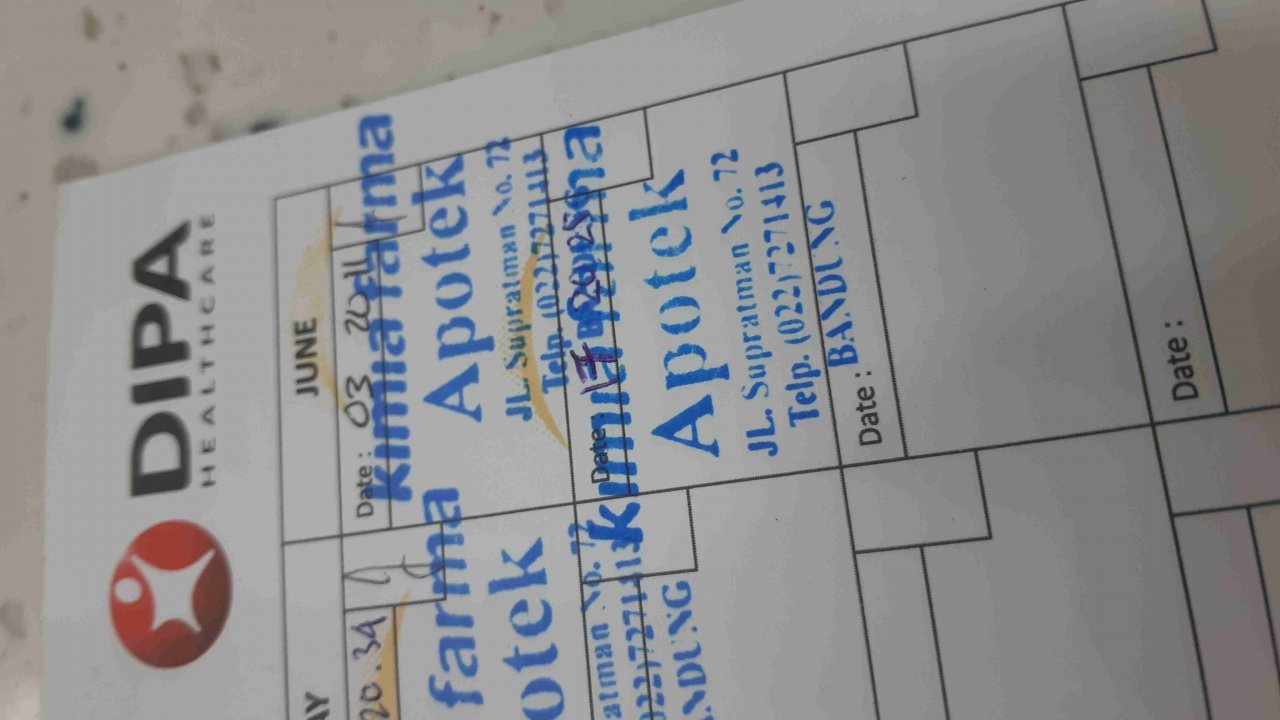 DIPA
HEALTHCARE
JUNE
Date : 03
kimia farma
Apotek
JL. Supratman No. 72
Telp. (022)7271413
Date 17
kimia
Apotek
JL. Supratman No. 72
Telp. (022)7271413
BANDUNG
Date :
Date :
AY
20.39
farma
otek
atman No. 72
022)7271413
ANDUNG